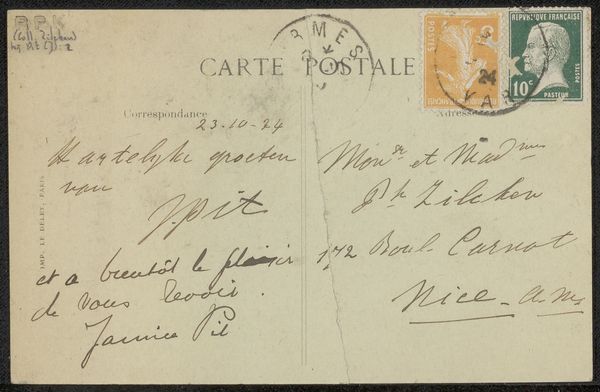 R.P.K.
(Coll. Zilcken)
CARTE POSTALE
RMES
24
VAR
POSTES
RÉPUBLIQUE FRANÇAISE
10c
PASTEUR
POSTES
Correspondance
Adresse
23-10-24
Hartelyke groeten
van
J. Pit
et a bientôt le plaisir
de vous revoir.
Pit
Monsr et Madme
Ph Zilcken
172 Boul. Carnot
Nice - a.m.
IMP. LE DELEY, PARIS